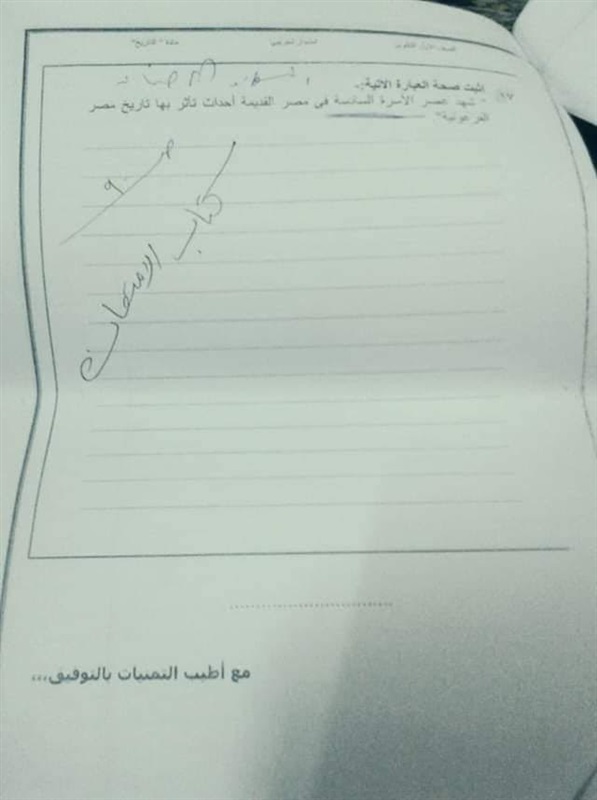 الصف الأول الثانوي امتحان تجريبي مادة "التاريخ"
١٧. اثبت صحة العبارة الاتية:.
" شهد عصر الأسرة السادسة فى مصر القديمة أحداث تأثر بها تاريخ مصر
الفرعونية"
صـ ٩٠
كتاب الامتحان
مع أطيب التمنيات بالتوفيق،،،